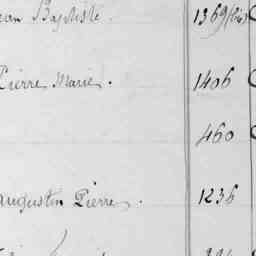 Baptiste 1369(bis)
Pierre Marie. 1406
460
Augustin Pierre. 1236